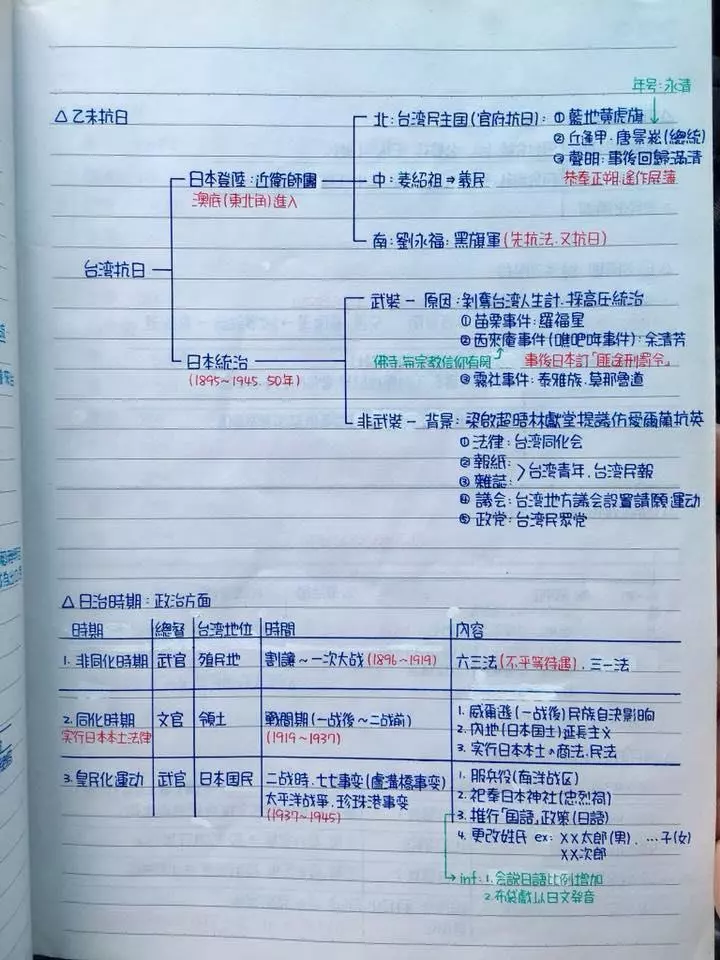 年号:永清
△乙未抗日
北:台湾民主国(官府抗日):①藍地黄虎旗
②丘逢甲.唐景崧(總統)
③聲明:事後回歸滿清
恭奉正朔.遙作屏藩
日本登陸:近衛師團
澳底(東北角)進入
中:姜紹祖⇒義民
南:劉永福:黑旗軍(先抗法.又抗日)
台湾抗日
武裝-原因:剝奪台湾人生計.採高圧統治
①苗栗事件:羅福星
②西來庵事件(噍吧哖事件):余清芳
佛寺.與宗教信仰有関
事後日本訂「匪徒刑罰令」
③霧社事件:泰雅族.莫那魯道
日本統治
(1895~1945.50年)
非武裝-背景:梁啟超晤林獻堂提議仿愛爾蘭抗英
①法律:台湾同化会
②報紙:
③雜誌:
>台湾青年.台湾民報
④議会:台湾地方議会設置請願運动
⑤政党:台湾民眾党
△日治時期:政治方面
時期 總督 台湾地位 時間 內容
1.非同化時期 武官 殖民地 割讓~一次大战(1896~1919) 六三法(不平等待遇).三一法
2.同化時期 文官 領土 戰間期(一战後~二战前) 1.威爾遜(一战後)民族自決影响
实行日本本土法律 (1919~1937) 2.內地(日本国土)延長主义
3.实行日本本土の商法.民法
3.皇民化運动 武官 日本国民 二战時.七七事变(盧溝橋事变) 1.服兵役(南洋战区)
太平洋战爭.珍珠港事变 2.祀奉日本神社(忠烈祠)
(1937~1945) 3.推行「国語」政策(日語)
4.更改姓氏 ex: XX太郎(男).…子(女)
XX次郎
→inf:1.会説日語比例增加
2.布袋戲以日文發音